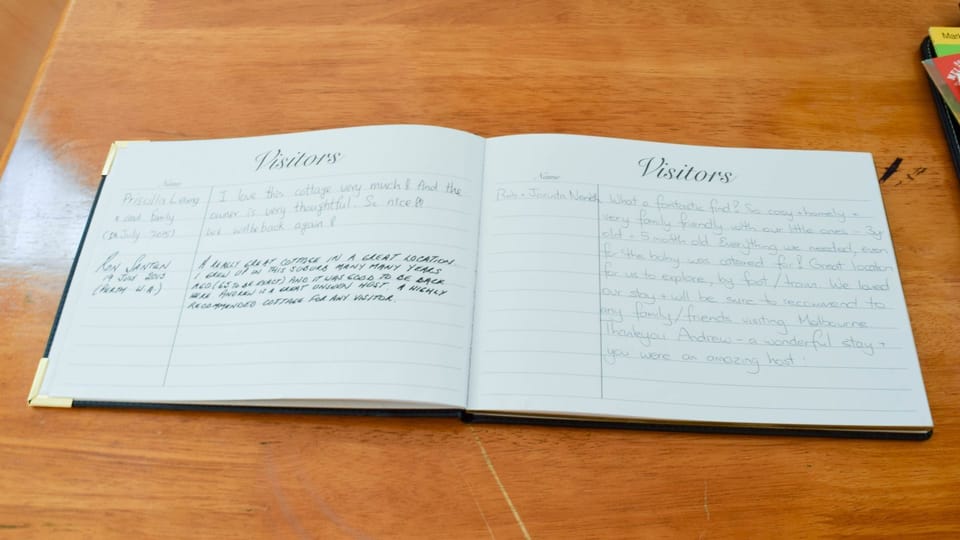 Visitors
Name
Priscilla
and family
July
I love this cottage very much! And the
owner is very thoughtful. So nice!!
will be back again!
RON SANTEN
19 JUN 2013
(PERTH W.A.)
A REALLY GREAT COTTAGE IN A GREAT LOCATION.
I GREW UP IN THIS SUBURB MANY MANY YEARS
AGO (65 TO BE EXACT) AND IT WAS GOOD TO BE BACK
HERE ANDREW IS A GREAT UNSEEN HOST. A HIGHLY
RECOMMENDED COTTAGE FOR ANY VISITOR.
Visitors
Name
What a fantastic find! So cosy + homely +
very family friendly with our little ones - 3yr
old + 5 month old. Everything we needed, even
for the baby was catered for! Great location
for us to explore, by foot / tram. We loved
our stay + will be sure to recommend to
any family/friends visiting Melbourne
Thankyou Andrew - a wonderful stay +
you were an amazing host!